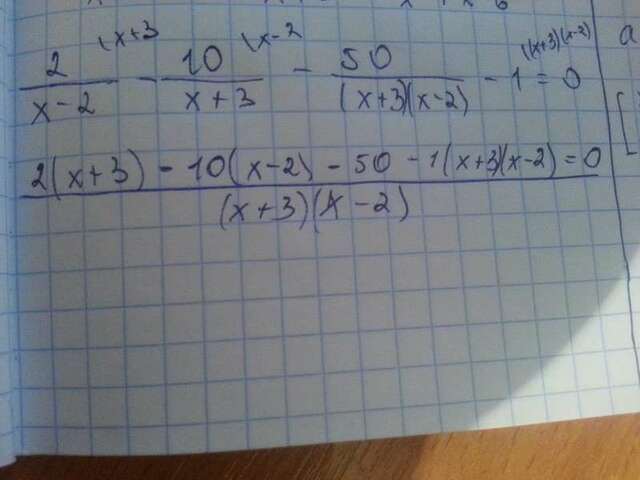 2^(x+3 / x-2 - 10^(x-2 / x+3 - 50 / (x+3)(x-2) - 1^((x+3)(x-2) = 0
2(x+3) - 10(x-2) - 50 - 1(x+3)(x-2) = 0
(x+3)(x-2)
a
[